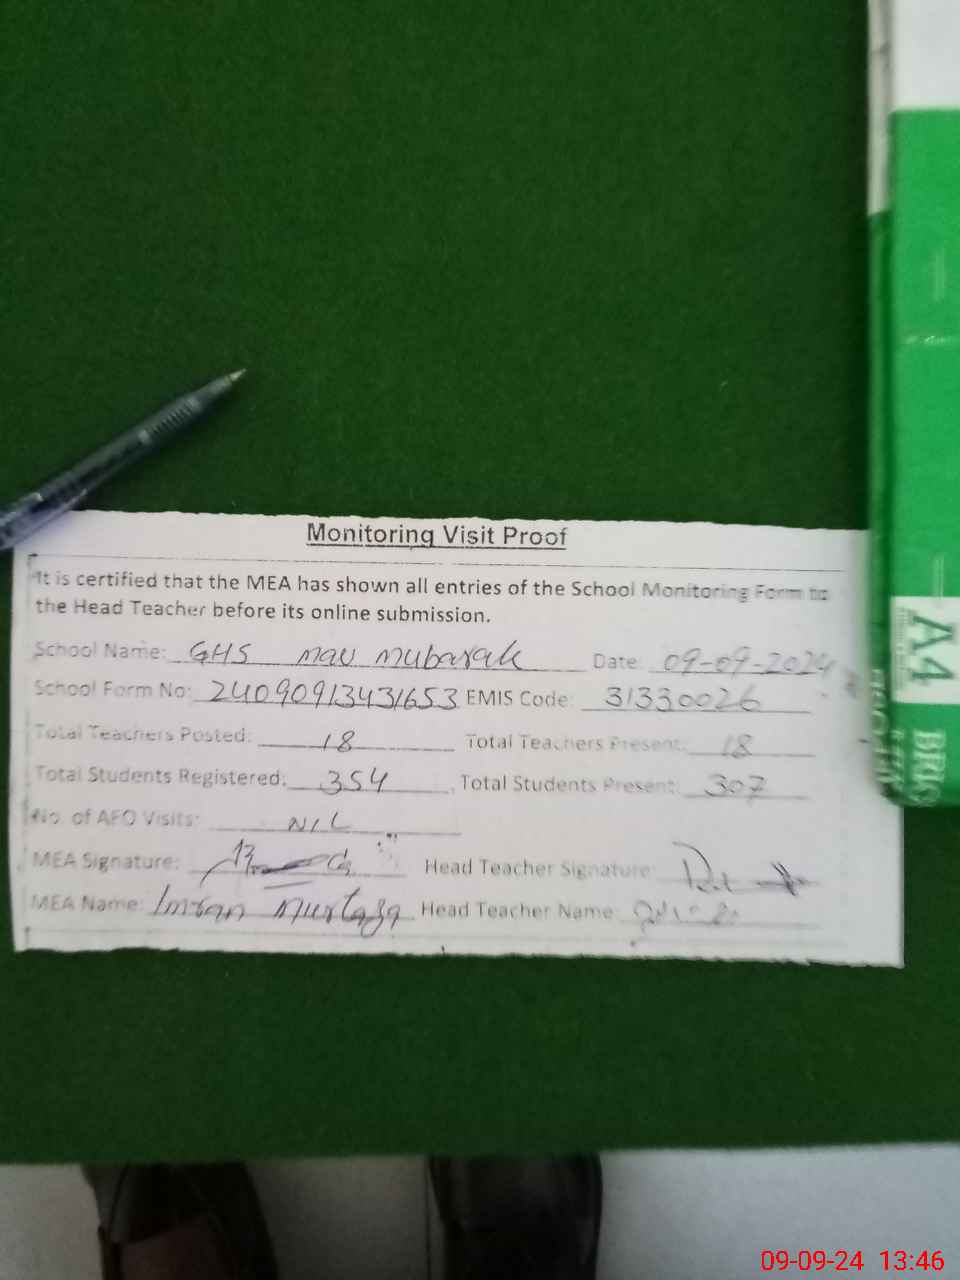 Monitoring Visit Proof
It is certified that the MEA has shown all entries of the School Monitoring Form to
the Head Teacher before its online submission.
School Name: GHS mau mubarak Date: 09-09-2024
School Form No: 24090913431653 EMIS Code: 31330026
Total Teachers Posted: 18 Total Teachers Present: 18
Total Students Registered: 354, Total Students Present: 307
No. of AEO Visits: NIL
MEA Signature: Head Teacher Signature:
MEA Name: Imran Murtaza Head Teacher Name:
A4
09-09-24 13:46